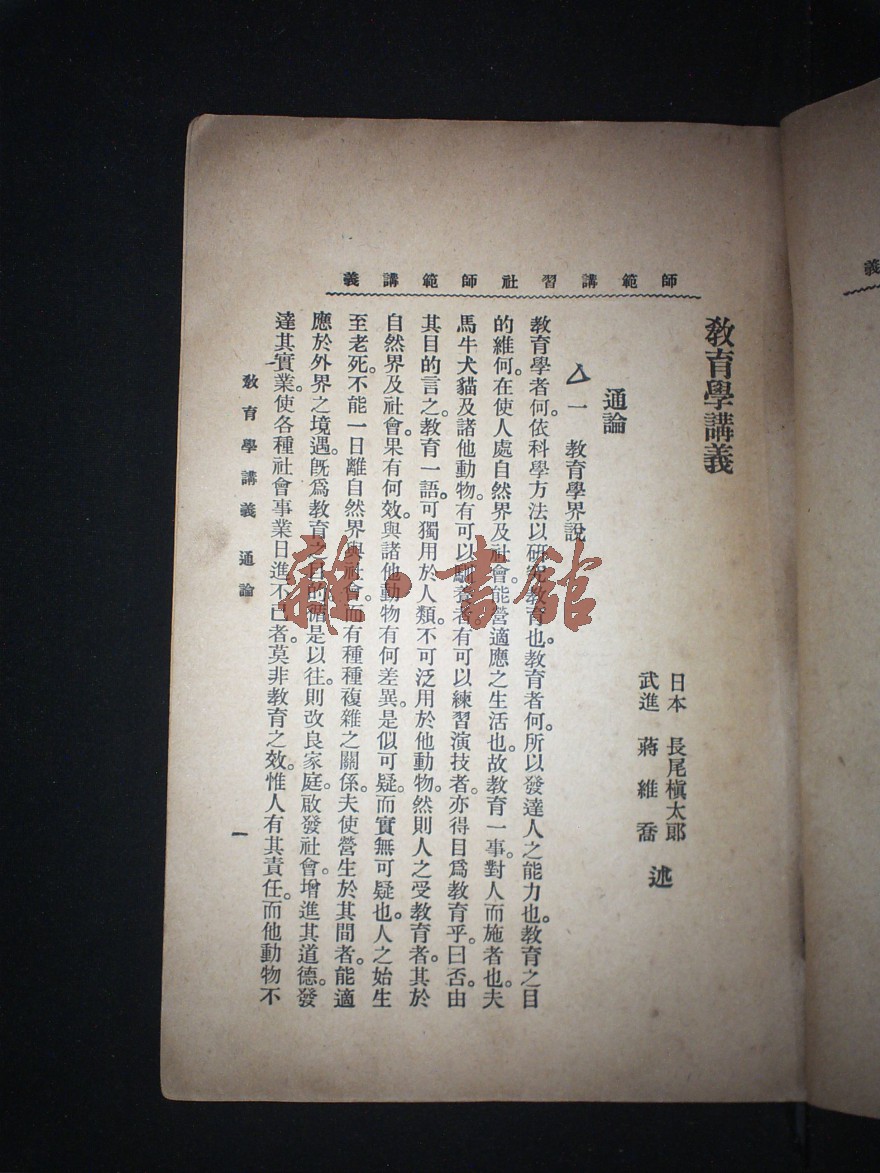 師範講習社師範講義
教育學講義
日本 長尾槇太郎
武進 蔣維喬 述
通論
一 教育學界說
教育學者何。依科學方法以研究教育也。教育者何。所以發達人之能力也。教育之目
的維何。在使人處自然界及社會。能營適應之生活也。故教育一事。對人而施者也。夫
馬牛犬貓及諸他動物。有可以馴養者。有可以練習演技者。亦得目爲教育乎。曰否。由
其目的言之。教育一語。可獨用於人類。不可泛用於他動物。然則人之受教育者。其於
自然界及社會。果有何效。與諸他動物有何差異。是似可疑。而實無可疑也。人之始生
至老死。不能一日離自然界與社會。而有種種複雜之關係。夫使營生於其間者。能適
應於外界之境遇。旣爲教育之目的。循是以往。則改良家庭。啟發社會。增進其道德。發
達其實業。使各種社會事業日進不已者。莫非教育之效。惟人有其責任。而他動物不
教育學講義 通論
一
義
雜·書館